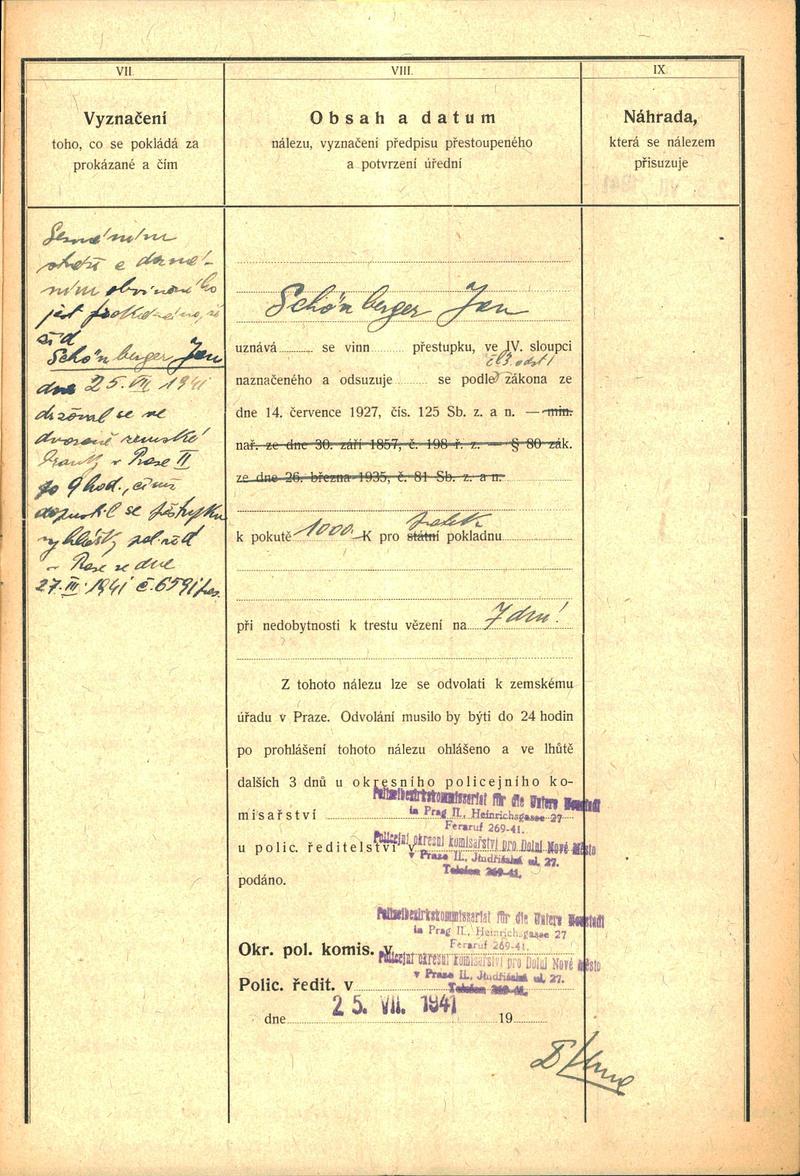 VII.
Vyznačení
toho, co se pokládá za
prokázané a čím
jest prokázáno, že
žid
Schönberger Jan
dne 25. VII. 1941
zdržoval se ve
dvoraně zemské
banky v Praze II
po 9 hod., čímž
dopustil se přestupku
vyhlášky pol. řed.
v Praze ze dne
27. III. 1941 č. 6591 pres.
VIII.
Obsah a datum
nálezu, vyznačení předpisu přestoupeného
a potvrzení úřední
Schönberger Jan
uznává se vinn přestupku, ve IV. sloupci
čl 3. odst 1
naznačeného a odsuzuje se podle zákona ze
dne 14. července 1927, čís. 125 Sb. z. a n. — min.
nař. ze dne 30. září 1857, č. 198 ř. z. — § 80 zák.
ze dne 26. března 1935, č. 81 Sb. z. a n.
k pokutě 1000.- K pro státní pokladnu
při nedobytnosti k trestu vězení na 7 dnů!
Z tohoto nálezu lze se odvolati k zemskému
úřadu v Praze. Odvolání musilo by býti do 24 hodin
po prohlášení tohoto nálezu ohlášeno a ve lhůtě
dalších 3 dnů u okresního policejního ko-
misařství
Polizeibezirkskommissariat für die Untere Neustadt
in Prag II., Heinrichsgasse 27
Fernruf 269-41.
u polic. ředitelství v
Policejní okresní komisařství pro Dolní Nové Město
v Praze II., Jindřišská ul. 27.
Telefon 269-41.
podáno.
Polizeibezirkskommissariat für die Untere Neustadt
in Prag II., Heinrichsgasse 27
Fernruf 269-41.
Okr. pol. komis. v
Policejní okresní komisařství pro Dolní Nové Město
v Praze II., Jindřišská ul. 27.
Telefon 269-41.
Polic. ředit. v
dne 25. VII. 1941 19
IX.
Náhrada,
která se nálezem
přisuzuje